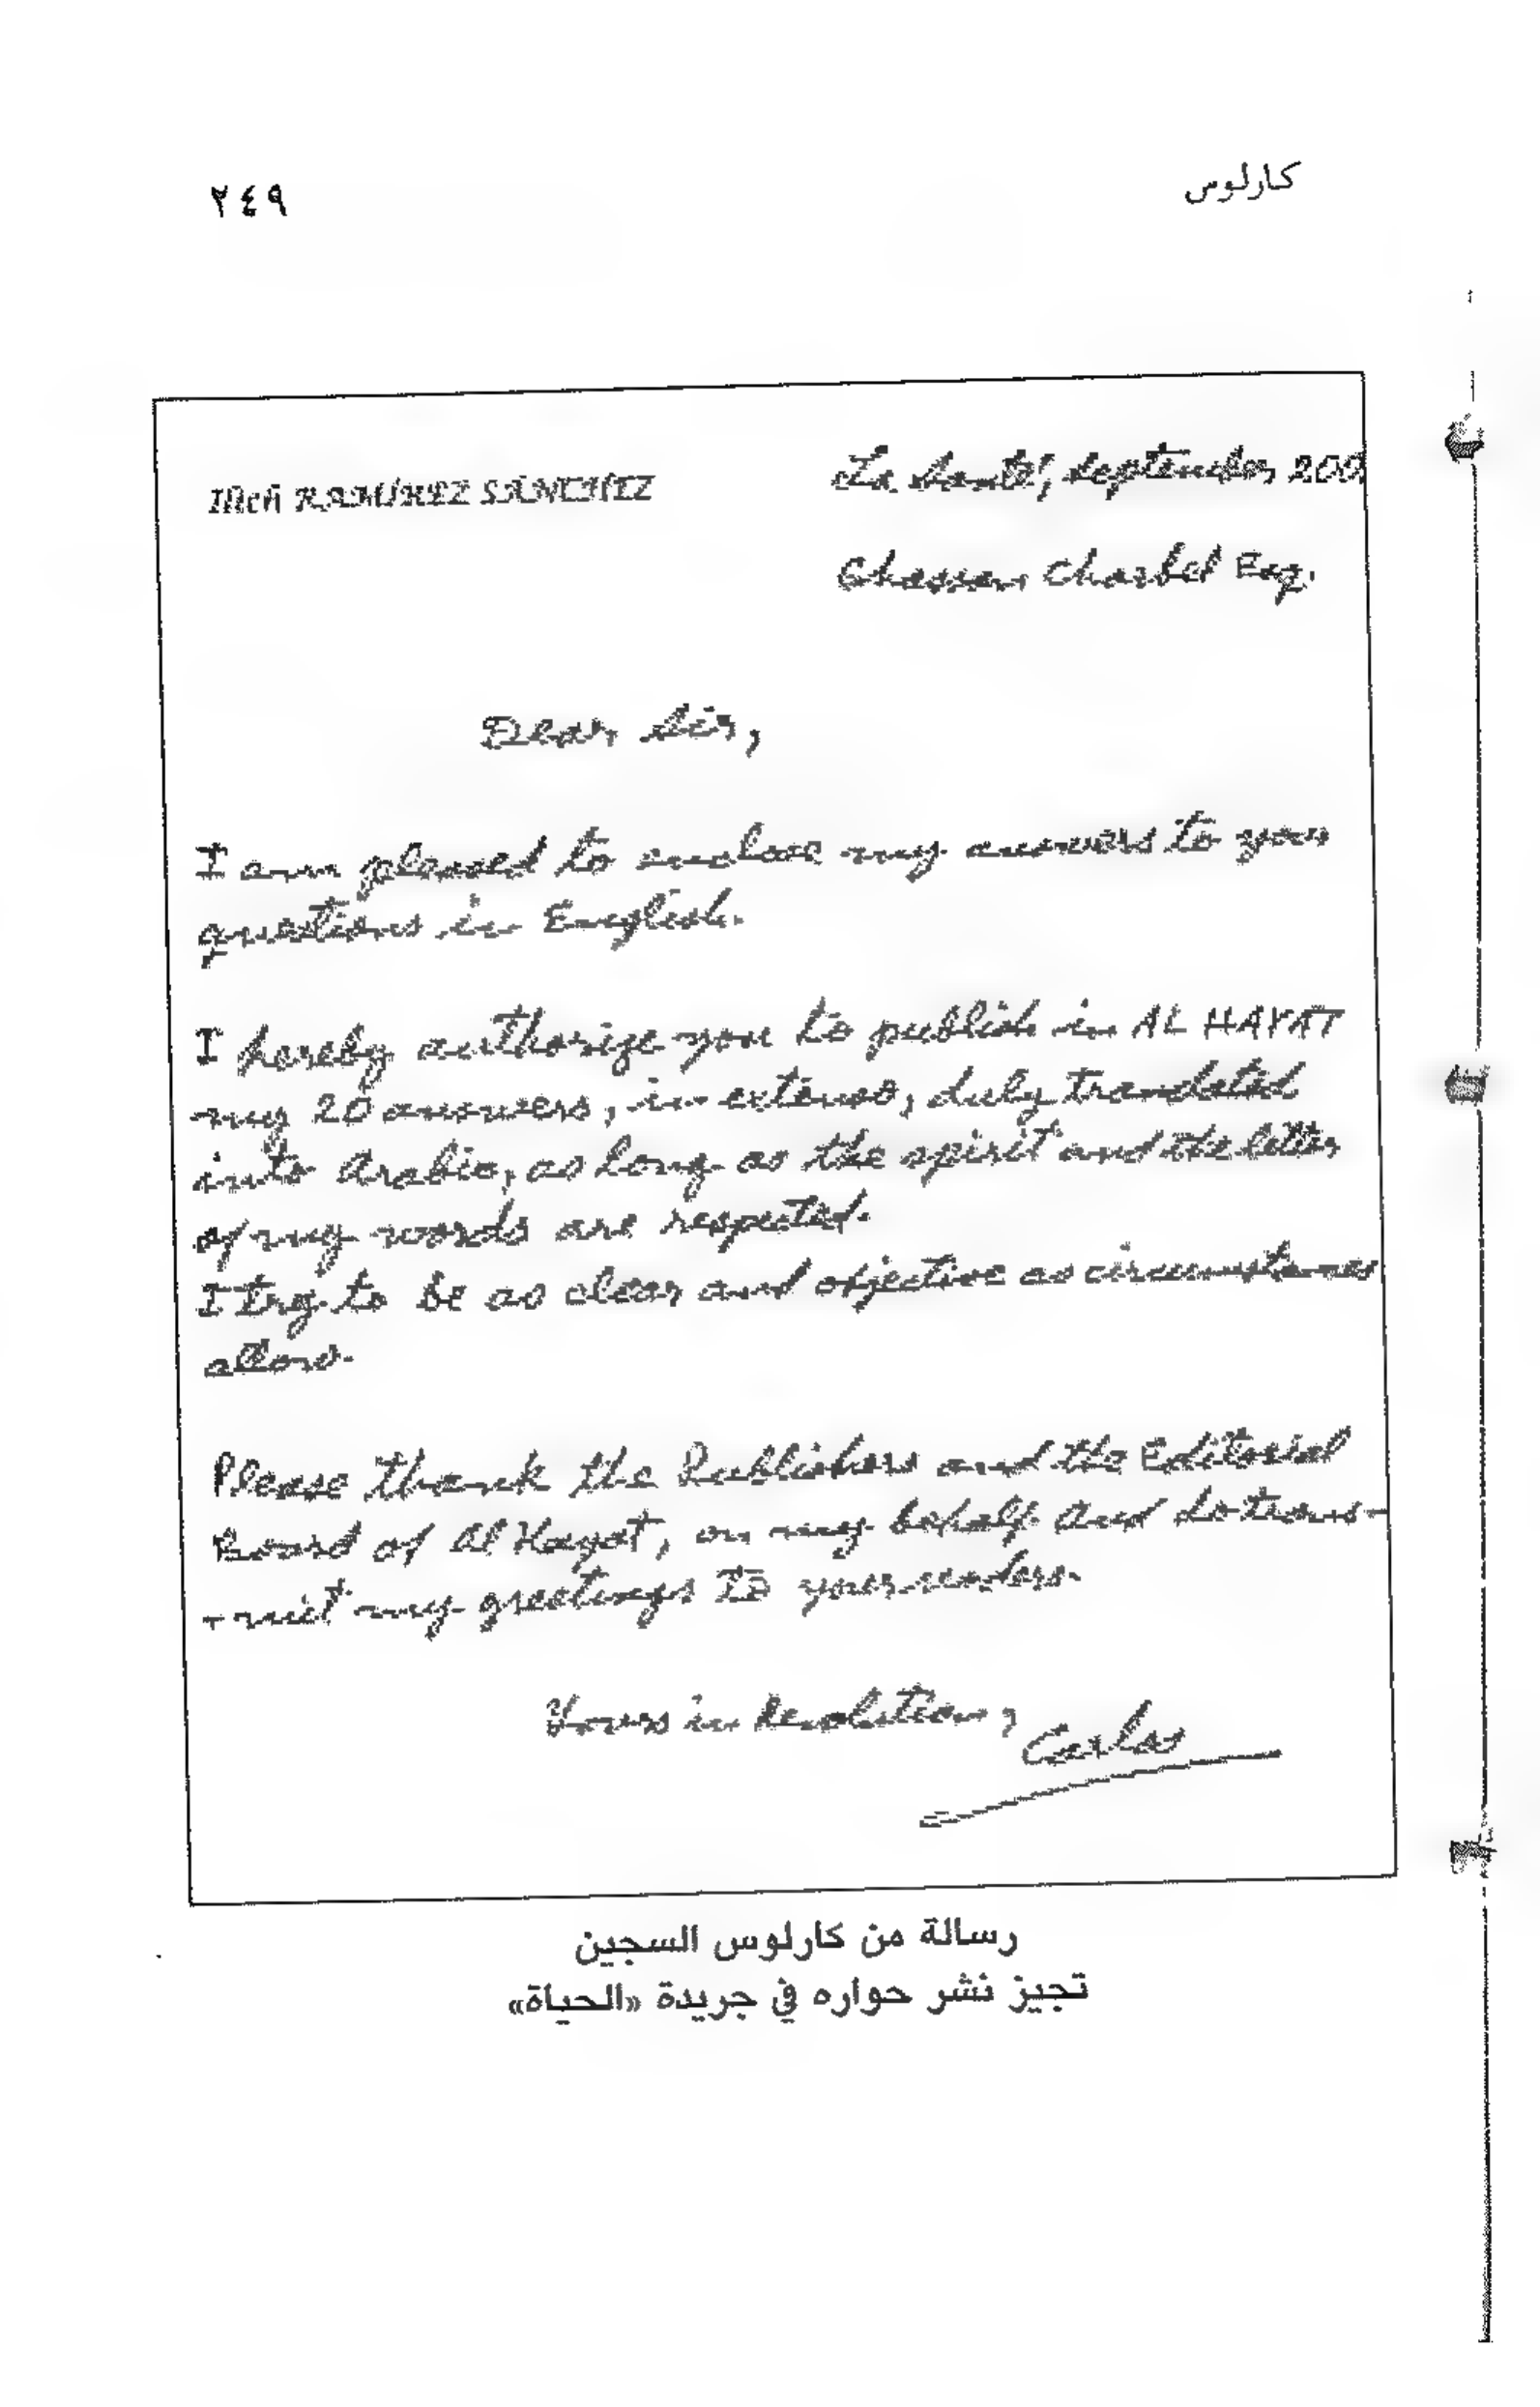 كارلوس
٢٤٩
Ilich RAMÍREZ SÁNCHEZ
La Santé, September 200
Ghassan Charbel Esq.
Dear Sir,
I am pleased to enclose my answers to your
questions in English.
I hereby authorize you to publish in AL HAYAT
my 20 answers, in extenso, duly translated
into Arabic, as long as the spirit and the letter
of my words are respected.
I try to be as clear and objective as circumstances
allow.
Please thank the Publishers and the Editorial
Board of Al Hayat, on my behalf and do trans-
-mit my greetings to your readers.
Yours in Revolution,
Carlos
رسالة من كارلوس السجين
تجيز نشر حواره في جريدة «الحياة»